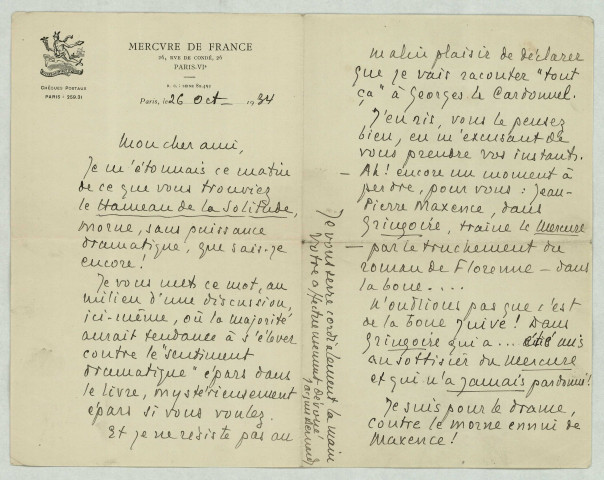 MERCVRE DE FRANCE
26, RVE DE CONDÉ, 26
PARIS-VIe
CHÈQUES POSTAUX
PARIS : 259.31
R. C. : SEINE 80.493
Paris, le 26 Oct 1934
Mon cher ami,
Je m'étonnais ce matin
de ce que vous trouviez
le Hameau de la Solitude,
morne, sans puissance
dramatique, que sais-je
encore !
Je vous mets ce mot, au
milien d'une discussion,
ici-même, où la majorité
aurait tendance à s'élever
contre le "sentiment
dramatique" épars dans
le livre, mystérieusement
épars si vous voulez.
Et je ne résiste pas au
malin plaisir de déclarer
que je vais raconter "tout
ça" à Georges le Cardonnel.
J'en ris, vous le pensez
bien, en m'excusant de
vous prendre vos instants.
— Ah ! encore un moment à
perdre, pour vous : Jean-
Pierre Maxence, dans
Gringoire, traîne le Mercure
— par le truchement du
roman de Florenne — dans
la boue. . . .
N'oublions pas que c'est
de la boue juive ! Dans
Gringoire qui a ... été mis
au sottisier du Mercure
et qui n'a jamais pardonné !
Je suis pour le drame,
contre le morne ennui de
Maxence !
Je vous serre cordialement la main
Votre affectueusement dévoué
Jacques Bernard